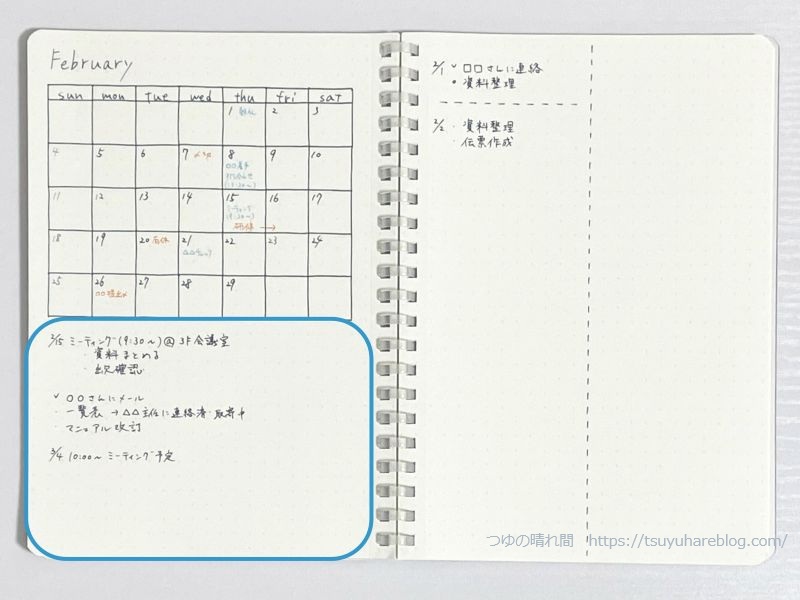 February
sun mon tue wed thu fri sat
1 2 3
4 5 6 7 〆切 8 9 10
○○着手
打ち合わせ
(13:30〜)
11 12 13 14 15 16 17
ミーティング
(9:30〜)
研修 →
18 19 20 有休 21 22 23 24
△△チェック
25 26 27 28 29
○○提出〆
2/15 ミーティング(9:30〜)@3F会議室
・資料まとめる
・出欠確認
✓ ○○さんにメール
・一覧表 → △△主任に連絡済・取寄中
・マニュアル改訂
3/4 10:00〜 ミーティング予定
2/1 ✓ □□さんに連絡
• 資料整理
2/2 ・資料整理
・伝票作成
つゆの晴れ間 https://tsuyuhareblog.com/